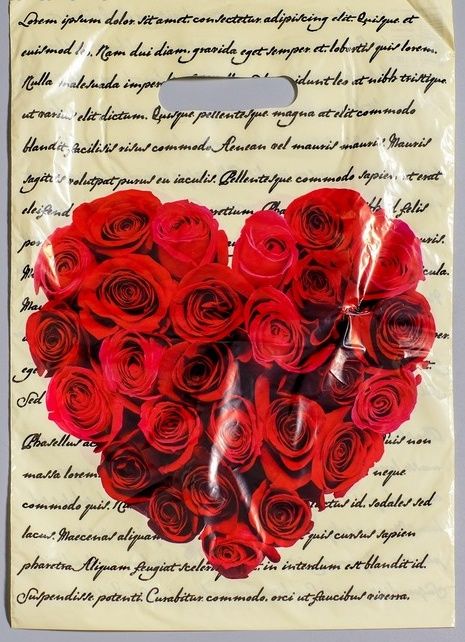 Lorem ipsum dolor sit amet consectetur adipiscing elit. Quisque et
euismod leo. Nam dui diam, gravida eget semper et, lobortis quis lorem.
Nulla malesuada tincidunt leo at nibh tristique
ut varius elit dictum. Quisque pellentesque magna at elit commodo
blandit facilisis risus commodo. Aenean vel mauris mauris. Mauris
sagittis volutpat purus eu iaculis. Pellentesque commodo sapien at erat
eleifend pretium facilisis
Sed
Phasellus quis non
massa lorem neque
commodo quis. id, sodales sed
lacus. Maecenas aliquam quis cursus sapien
pharetra. Aliquam feugiat in interdum est blandit id.
Suspendisse potenti. Curabitur commodo, orci ut faucibus viverra.